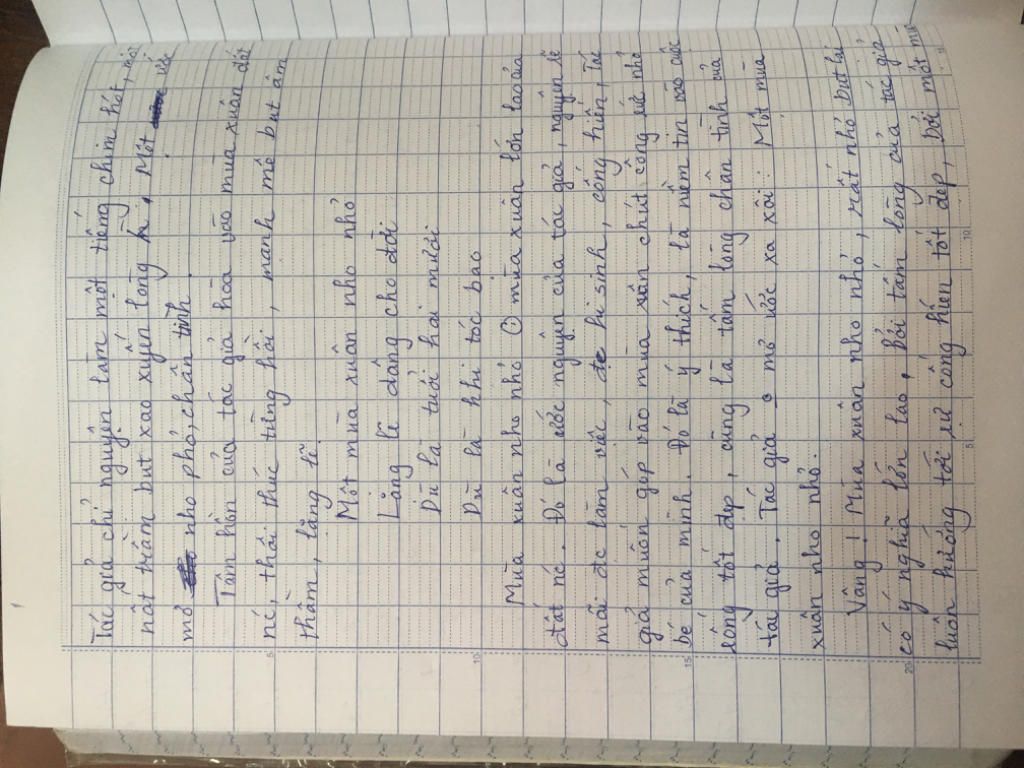 Tác giả chỉ nguyện làm một tiếng chim hót, một
nốt trầm but xao xuyến lòng Một ước
mơ nho nhỏ, chân tình.
Tâm hồn của tác giả hòa vào mùa xuân đất
nc, thôi thúc từng hồi, mạnh mẽ but âm
thầm, lặng lẽ.
Một mùa xuân nho nhỏ
Lặng lẽ dâng cho đời
Dù là tuổi hai mươi
Dù là khi tóc bạc
Mùa xuân nho nhỏ mùa xuân lớn lao của
đất nc. Đó là ước nguyện của tác giả, nguyện sẽ
mãi đc làm việc, đc hi sinh, cống hiến, Tác
giả muốn góp vào mùa xuân chút công sức nhỏ
bé của mình. Đó là ý thích, là niềm tin vào cuộc
sống tốt đẹp, cũng là tấm lòng chân tình của
tác giả. Tác giả mơ ước xa xôi: Một mùa
xuân nho nhỏ.
Vâng! Mùa xuân nho nhỏ, rất nhỏ but lại
có ý nghĩa lớn lao, bởi tấm lòng của tác giả
luôn hướng tới sự cống hiến tốt đẹp, bởi một mù